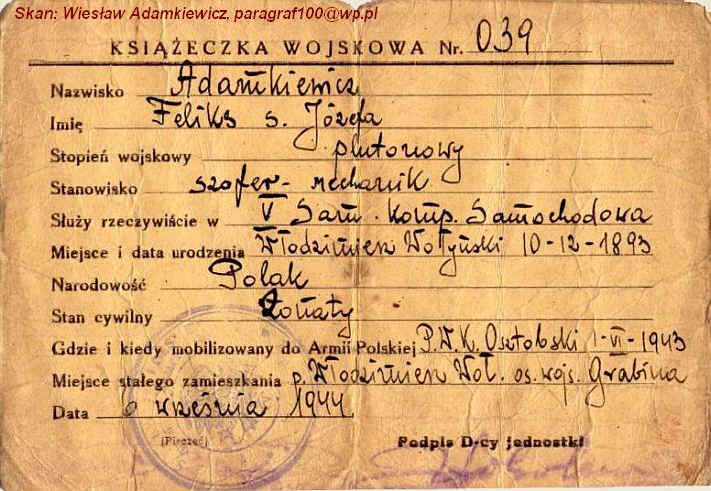 Skan: Wiesław Adamkiewicz, paragraf100@wp.pl
KSIĄŻECZKA WOJSKOWA Nr. 039
Nazwisko Adamkiewicz
Imię Feliks s. Józefa
Stopień wojskowy plutonowy
Stanowisko szofer-mechanik
Służy rzeczywiście w V Sam. Komp. Samochodowa
Miejsce i data urodzenia Włodzimierz Wołyński 10-12-1893
Narodowość Polak
Stan cywilny Żonaty
Gdzie i kiedy mobilizowany do Armii Polskiej P.W.K. 1-VI-1943
Miejsce stałego zamieszkania p. Włodzimierz Woł. os. wojs. Grabina
Data września 1944
(Pieczęć) Podpis D-cy jednostki